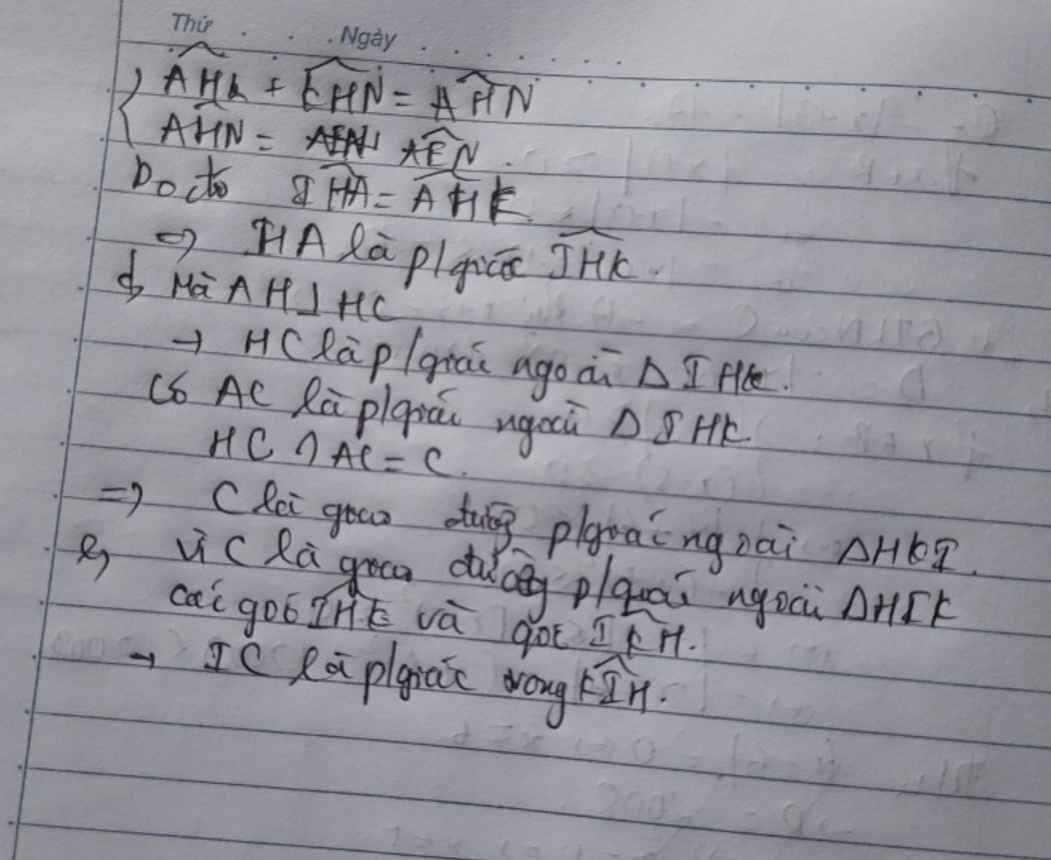 Thứ . . . . Ngày . . . . . . . .
{ AHK + KHN = AHN
AHN = AEN
Do đó IHA = AHK
=> HA là p/giác IHK.
d, Mà AH ⊥ HC
→ HC là p/giác ngoài Δ IHK.
Có AC là p/giác ngoài Δ IHK
HC ∩ AC = C.
=> C là giao đường p/giác ngoài ΔHKI.
e, Vì C là giao đường p/giác ngoài ΔHIK
các góc IHK và góc IKH.
→ IC là p/giác trong KIH.